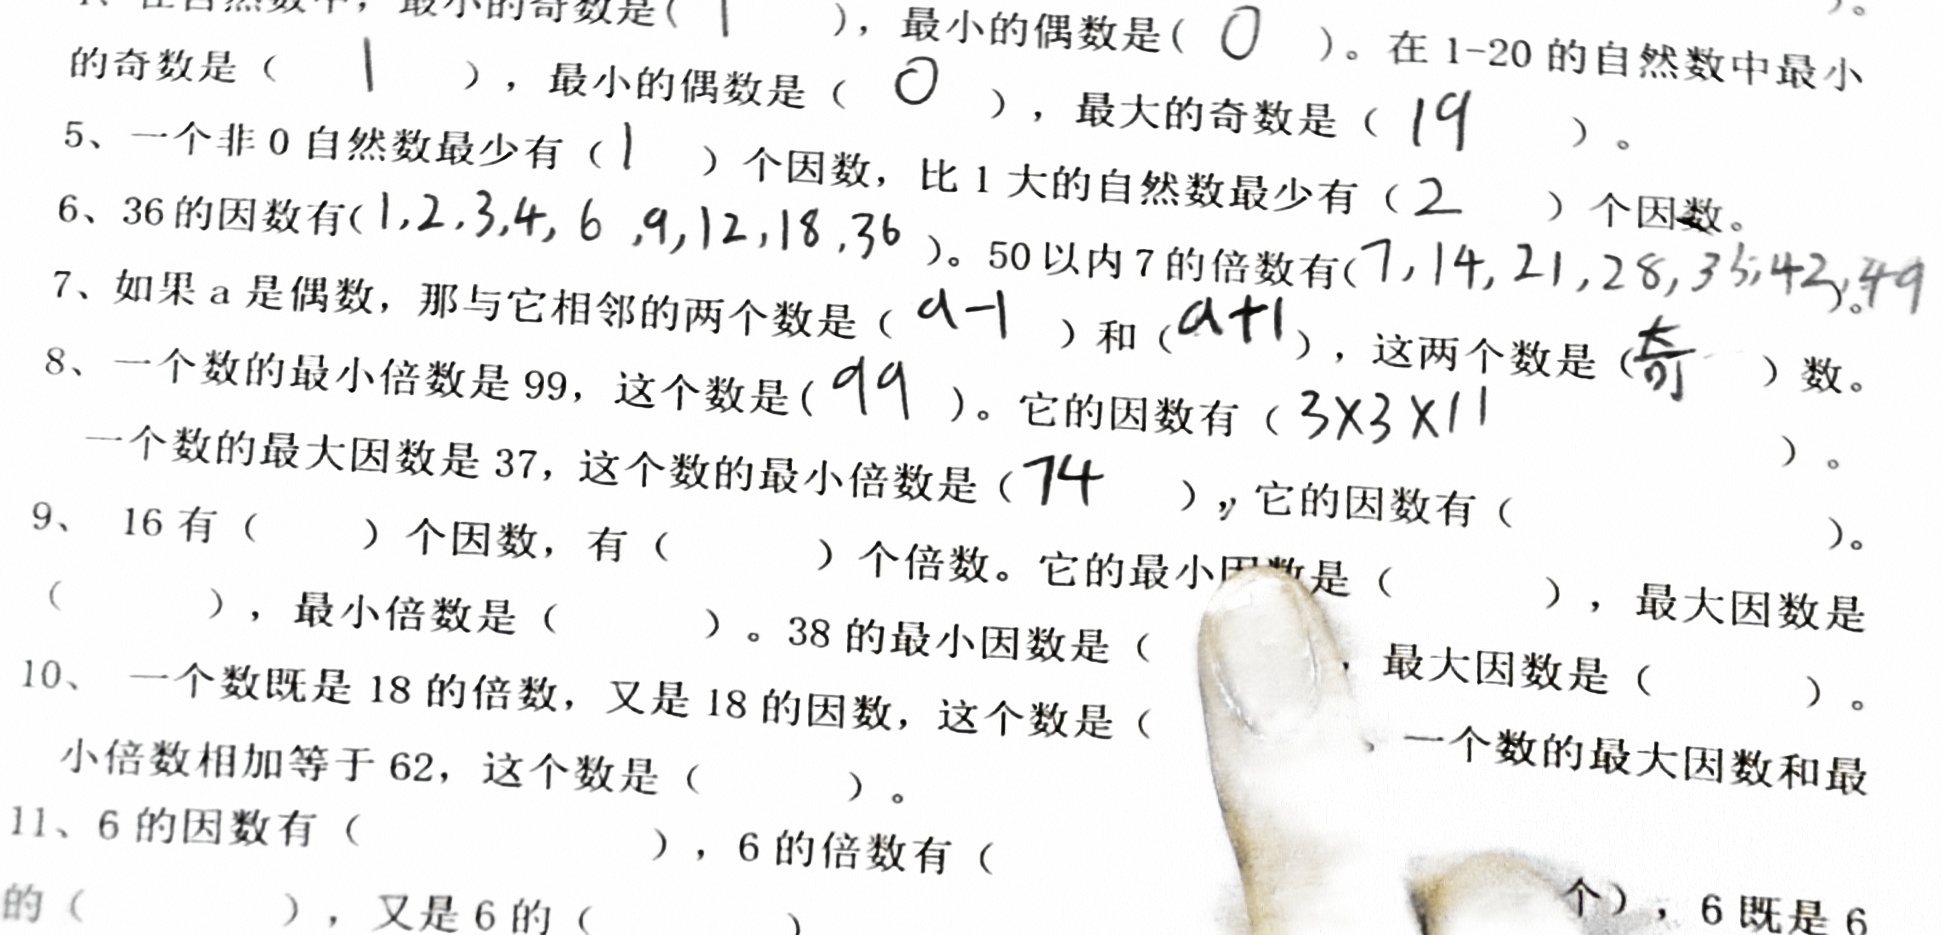 在自然数中，最小的奇数是( 1 )，最小的偶数是( 0 )。在 1-20 的自然数中最小
的奇数是（ 1 ），最小的偶数是（ 0 ），最大的奇数是（ 19 ）。
5、一个非 0 自然数最少有（ 1 ）个因数，比 1 大的自然数最少有（ 2 ）个因数。
6、36 的因数有(1,2,3,4,6,9,12,18,36)。50 以内 7 的倍数有(7,14,21,28,35,42,49)。
7、如果 a 是偶数，那与它相邻的两个数是（ a-1 ）和（ a+1 ），这两个数是（奇 ）数。
8、一个数的最小倍数是 99，这个数是( 99 )。它的因数有（ 3×3×11 ）。
一个数的最大因数是 37，这个数的最小倍数是（ 74 ），它的因数有（ ）。
9、 16 有（ ）个因数，有（ ）个倍数。它的最小因数是（ ），最大因数是
（ ），最小倍数是（ ）。38 的最小因数是（ ，最大因数是（ ）。
10、 一个数既是 18 的倍数，又是 18 的因数，这个数是（ 、一个数的最大因数和最
小倍数相加等于 62，这个数是（ ）。
11、6 的因数有（ ），6 的倍数有（ 个），6 既是 6
的（ ），又是 6 的（ ）